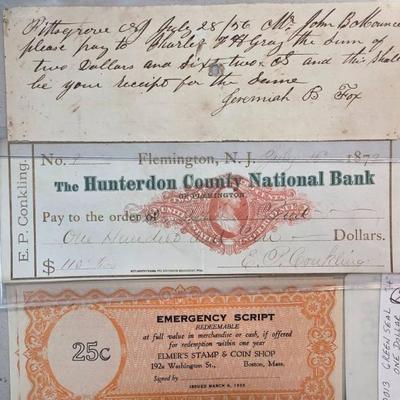 Pittsgrove NJ July 28/56 Mr John B
please pay to Charles H Gray the sum of
two Dollars and sixty two cts and this shall
be your receipt for the same
Jeremiah B Fox
E. P. Conkling.
No. Flemington, N. J. July 187
The Hunterdon County National Bank
OF FLEMINGTON
Pay to the order of
One Hundred and Ten Dollars.
$ 110 E. P. Conkling
EMERGENCY SCRIPT
REDEEMABLE
at full value in merchandise or cash, if offered
for redemption within one year
25c
ELMER'S STAMP & COIN SHOP
192a Washington St., Boston, Mass.
Signed by
ISSUED MARCH 6, 1933
GREEN SEAL
ONE DOLLAR